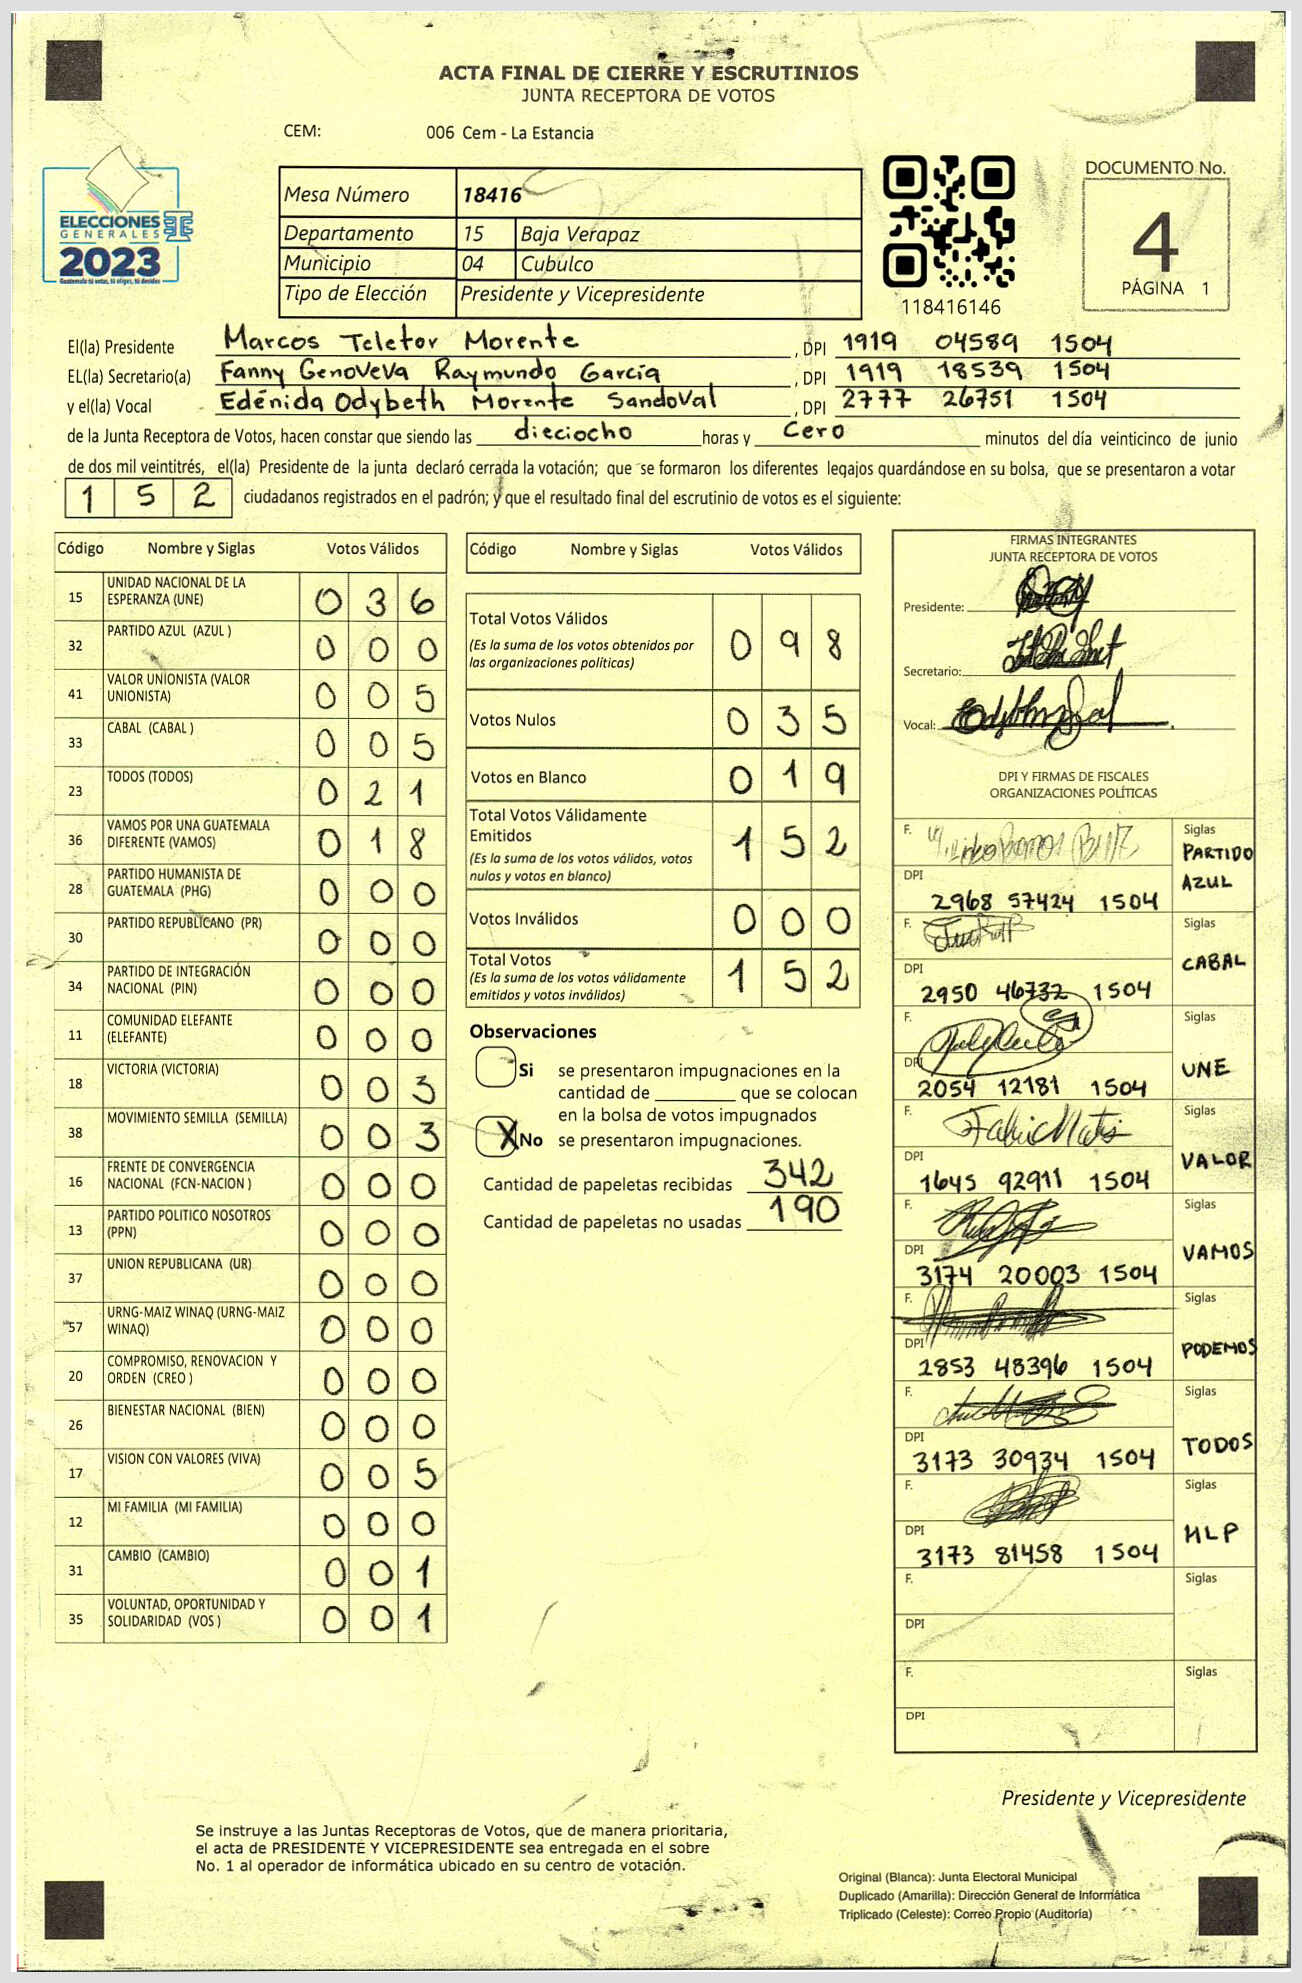 ACTA FINAL DE CIERRE Y ESCRUTINIOS
JUNTA RECEPTORA DE VOTOS
CEM: 006 Cem - La Estancia
ELECCIONES
GENERALES
2023
Guatemala tú votas, tú eliges, tú decides
Mesa Número 18416
Departamento 15 Baja Verapaz
Municipio 04 Cubulco
Tipo de Elección Presidente y Vicepresidente
118416146
DOCUMENTO No.
4
PÁGINA 1
El(la) Presidente Marcos Teletor Morente , DPI 1919 04589 1504
EL(la) Secretario(a) Fanny Genoveva Raymundo García , DPI 1919 18539 1504
y el(la) Vocal Edénida Odybeth Morente Sandoval , DPI 2777 26751 1504
de la Junta Receptora de Votos, hacen constar que siendo las dieciocho horas y cero minutos del día veinticinco de junio
de dos mil veintitrés, el(la) Presidente de la junta declaró cerrada la votación; que se formaron los diferentes legajos guardándose en su bolsa, que se presentaron a votar
1 5 2 ciudadanos registrados en el padrón; y que el resultado final del escrutinio de votos es el siguiente:
Código Nombre y Siglas Votos Válidos
15 UNIDAD NACIONAL DE LA
ESPERANZA (UNE) 0 3 6
32 PARTIDO AZUL (AZUL ) 0 0 0
41 VALOR UNIONISTA (VALOR
UNIONISTA) 0 0 5
33 CABAL (CABAL ) 0 0 5
23 TODOS (TODOS) 0 2 1
36 VAMOS POR UNA GUATEMALA
DIFERENTE (VAMOS) 0 1 8
28 PARTIDO HUMANISTA DE
GUATEMALA (PHG) 0 0 0
30 PARTIDO REPUBLICANO (PR) 0 0 0
34 PARTIDO DE INTEGRACIÓN
NACIONAL (PIN) 0 0 0
11 COMUNIDAD ELEFANTE
(ELEFANTE) 0 0 0
18 VICTORIA (VICTORIA) 0 0 3
38 MOVIMIENTO SEMILLA (SEMILLA) 0 0 3
16 FRENTE DE CONVERGENCIA
NACIONAL (FCN-NACION ) 0 0 0
13 PARTIDO POLITICO NOSOTROS
(PPN) 0 0 0
37 UNION REPUBLICANA (UR) 0 0 0
57 URNG-MAIZ WINAQ (URNG-MAIZ
WINAQ) 0 0 0
20 COMPROMISO, RENOVACION Y
ORDEN (CREO ) 0 0 0
26 BIENESTAR NACIONAL (BIEN) 0 0 0
17 VISION CON VALORES (VIVA) 0 0 5
12 MI FAMILIA (MI FAMILIA) 0 0 0
31 CAMBIO (CAMBIO) 0 0 1
35 VOLUNTAD, OPORTUNIDAD Y
SOLIDARIDAD (VOS ) 0 0 1
Código Nombre y Siglas Votos Válidos
Total Votos Válidos 0 9 8
(Es la suma de los votos obtenidos por
las organizaciones políticas)
Votos Nulos 0 3 5
Votos en Blanco 0 1 9
Total Votos Válidamente
Emitidos 1 5 2
(Es la suma de los votos válidos, votos
nulos y votos en blanco)
Votos Inválidos 0 0 0
Total Votos 1 5 2
(Es la suma de los votos válidamente
emitidos y votos inválidos)
Observaciones
Si se presentaron impugnaciones en la
cantidad de ________ que se colocan
en la bolsa de votos impugnados
X No se presentaron impugnaciones.
Cantidad de papeletas recibidas 342
Cantidad de papeletas no usadas 190
FIRMAS INTEGRANTES
JUNTA RECEPTORA DE VOTOS
Presidente:
Secretario:
Vocal:
DPI Y FIRMAS DE FISCALES
ORGANIZACIONES POLÍTICAS
F. Siglas
PARTIDO
AZUL
DPI
2968 57424 1504
F. Siglas
CABAL
DPI
2950 46732 1504
F. Siglas
UNE
DPI
2054 12181 1504
F. Siglas
VALOR
DPI
1645 92911 1504
F. Siglas
VAMOS
DPI
3174 20003 1504
F. Siglas
PODEMOS
DPI
2853 48396 1504
F. Siglas
TODOS
DPI
3173 30934 1504
F. Siglas
MLP
DPI
3173 81458 1504
F. Siglas
DPI
F. Siglas
DPI
Presidente y Vicepresidente
Se instruye a las Juntas Receptoras de Votos, que de manera prioritaria,
el acta de PRESIDENTE Y VICEPRESIDENTE sea entregada en el sobre
No. 1 al operador de informática ubicado en su centro de votación.
Original (Blanca): Junta Electoral Municipal
Duplicado (Amarilla): Dirección General de Informática
Triplicado (Celeste): Correo Propio (Auditoría)